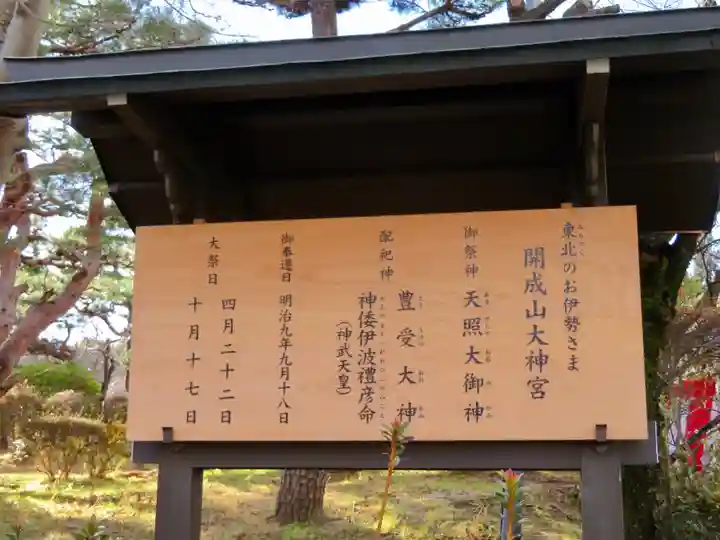 東北のお伊勢さま
開成山大神宮
御祭神 天照大御神
豊受大神
配祀神 神倭伊波禮彦命
（神武天皇）
御奉遷日 明治九年九月十八日
大祭日 四月二十二日
十月十七日